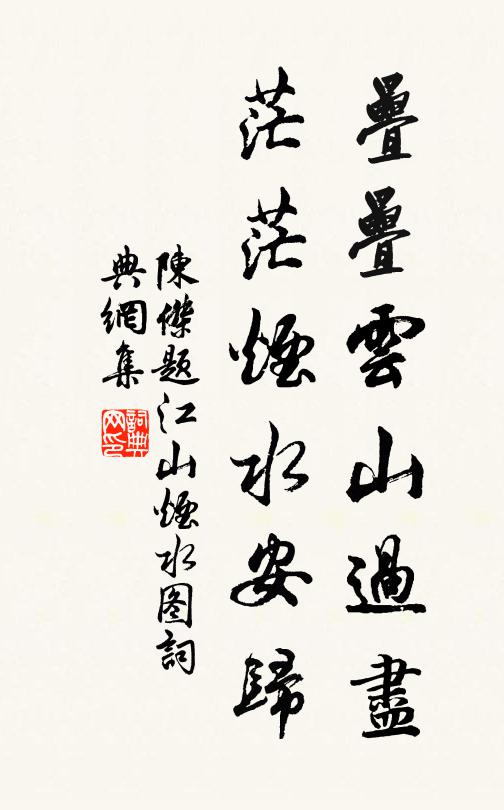 疊疊雲山過盡
茫茫煙水安歸
陳傑題江山煙水图詞
典網集
詞典网印